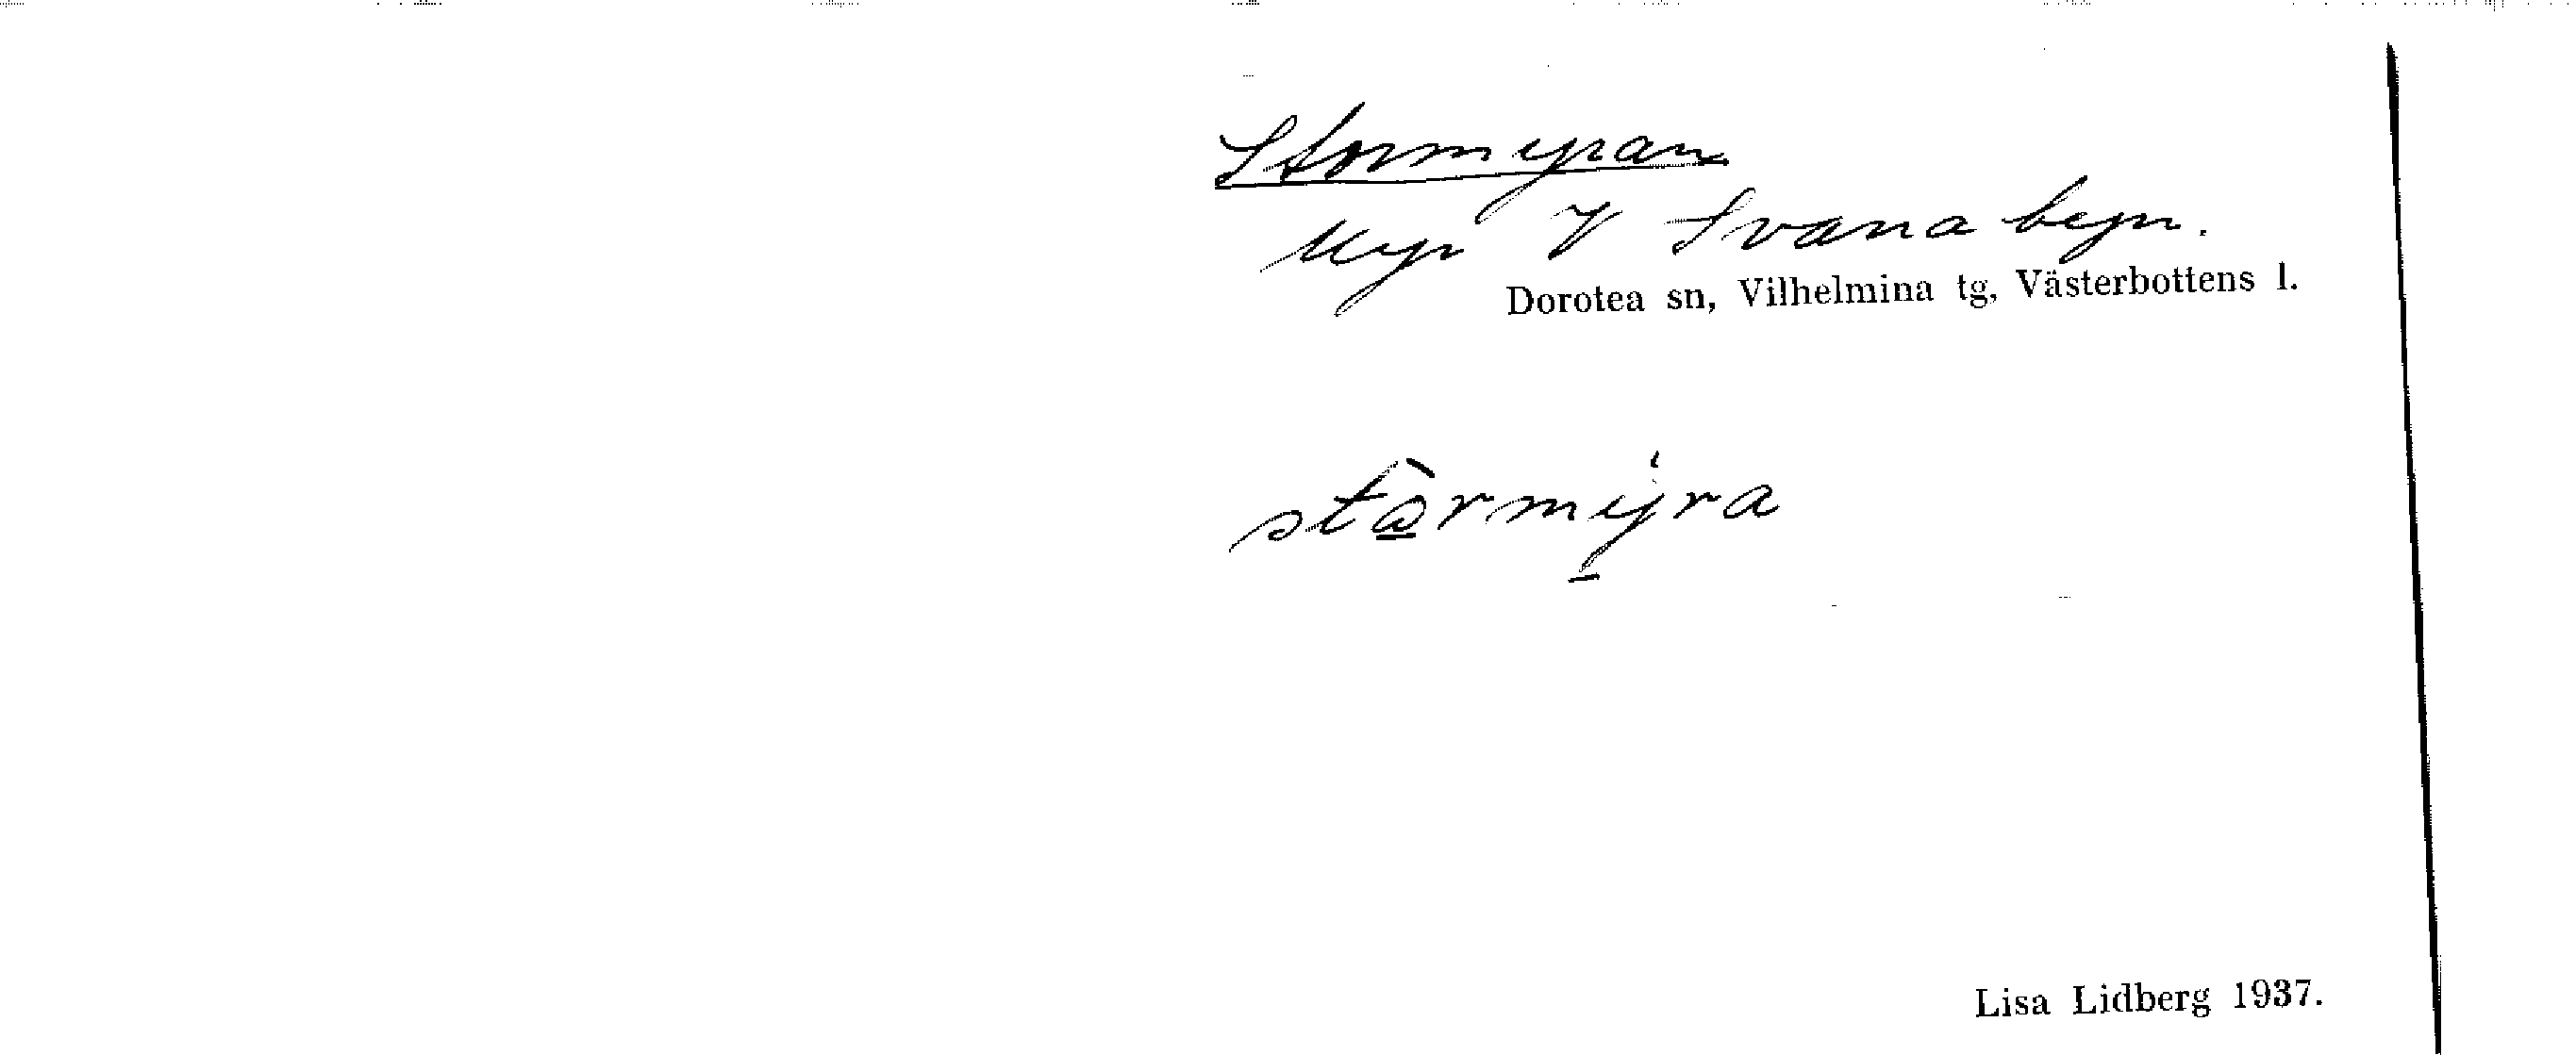 Stormyran
Myr V Svanabyn.
Dorotea sn, Vilhelmina tg, Västerbottens l.
stòrmy̍ra
Lisa Lidberg 1937.